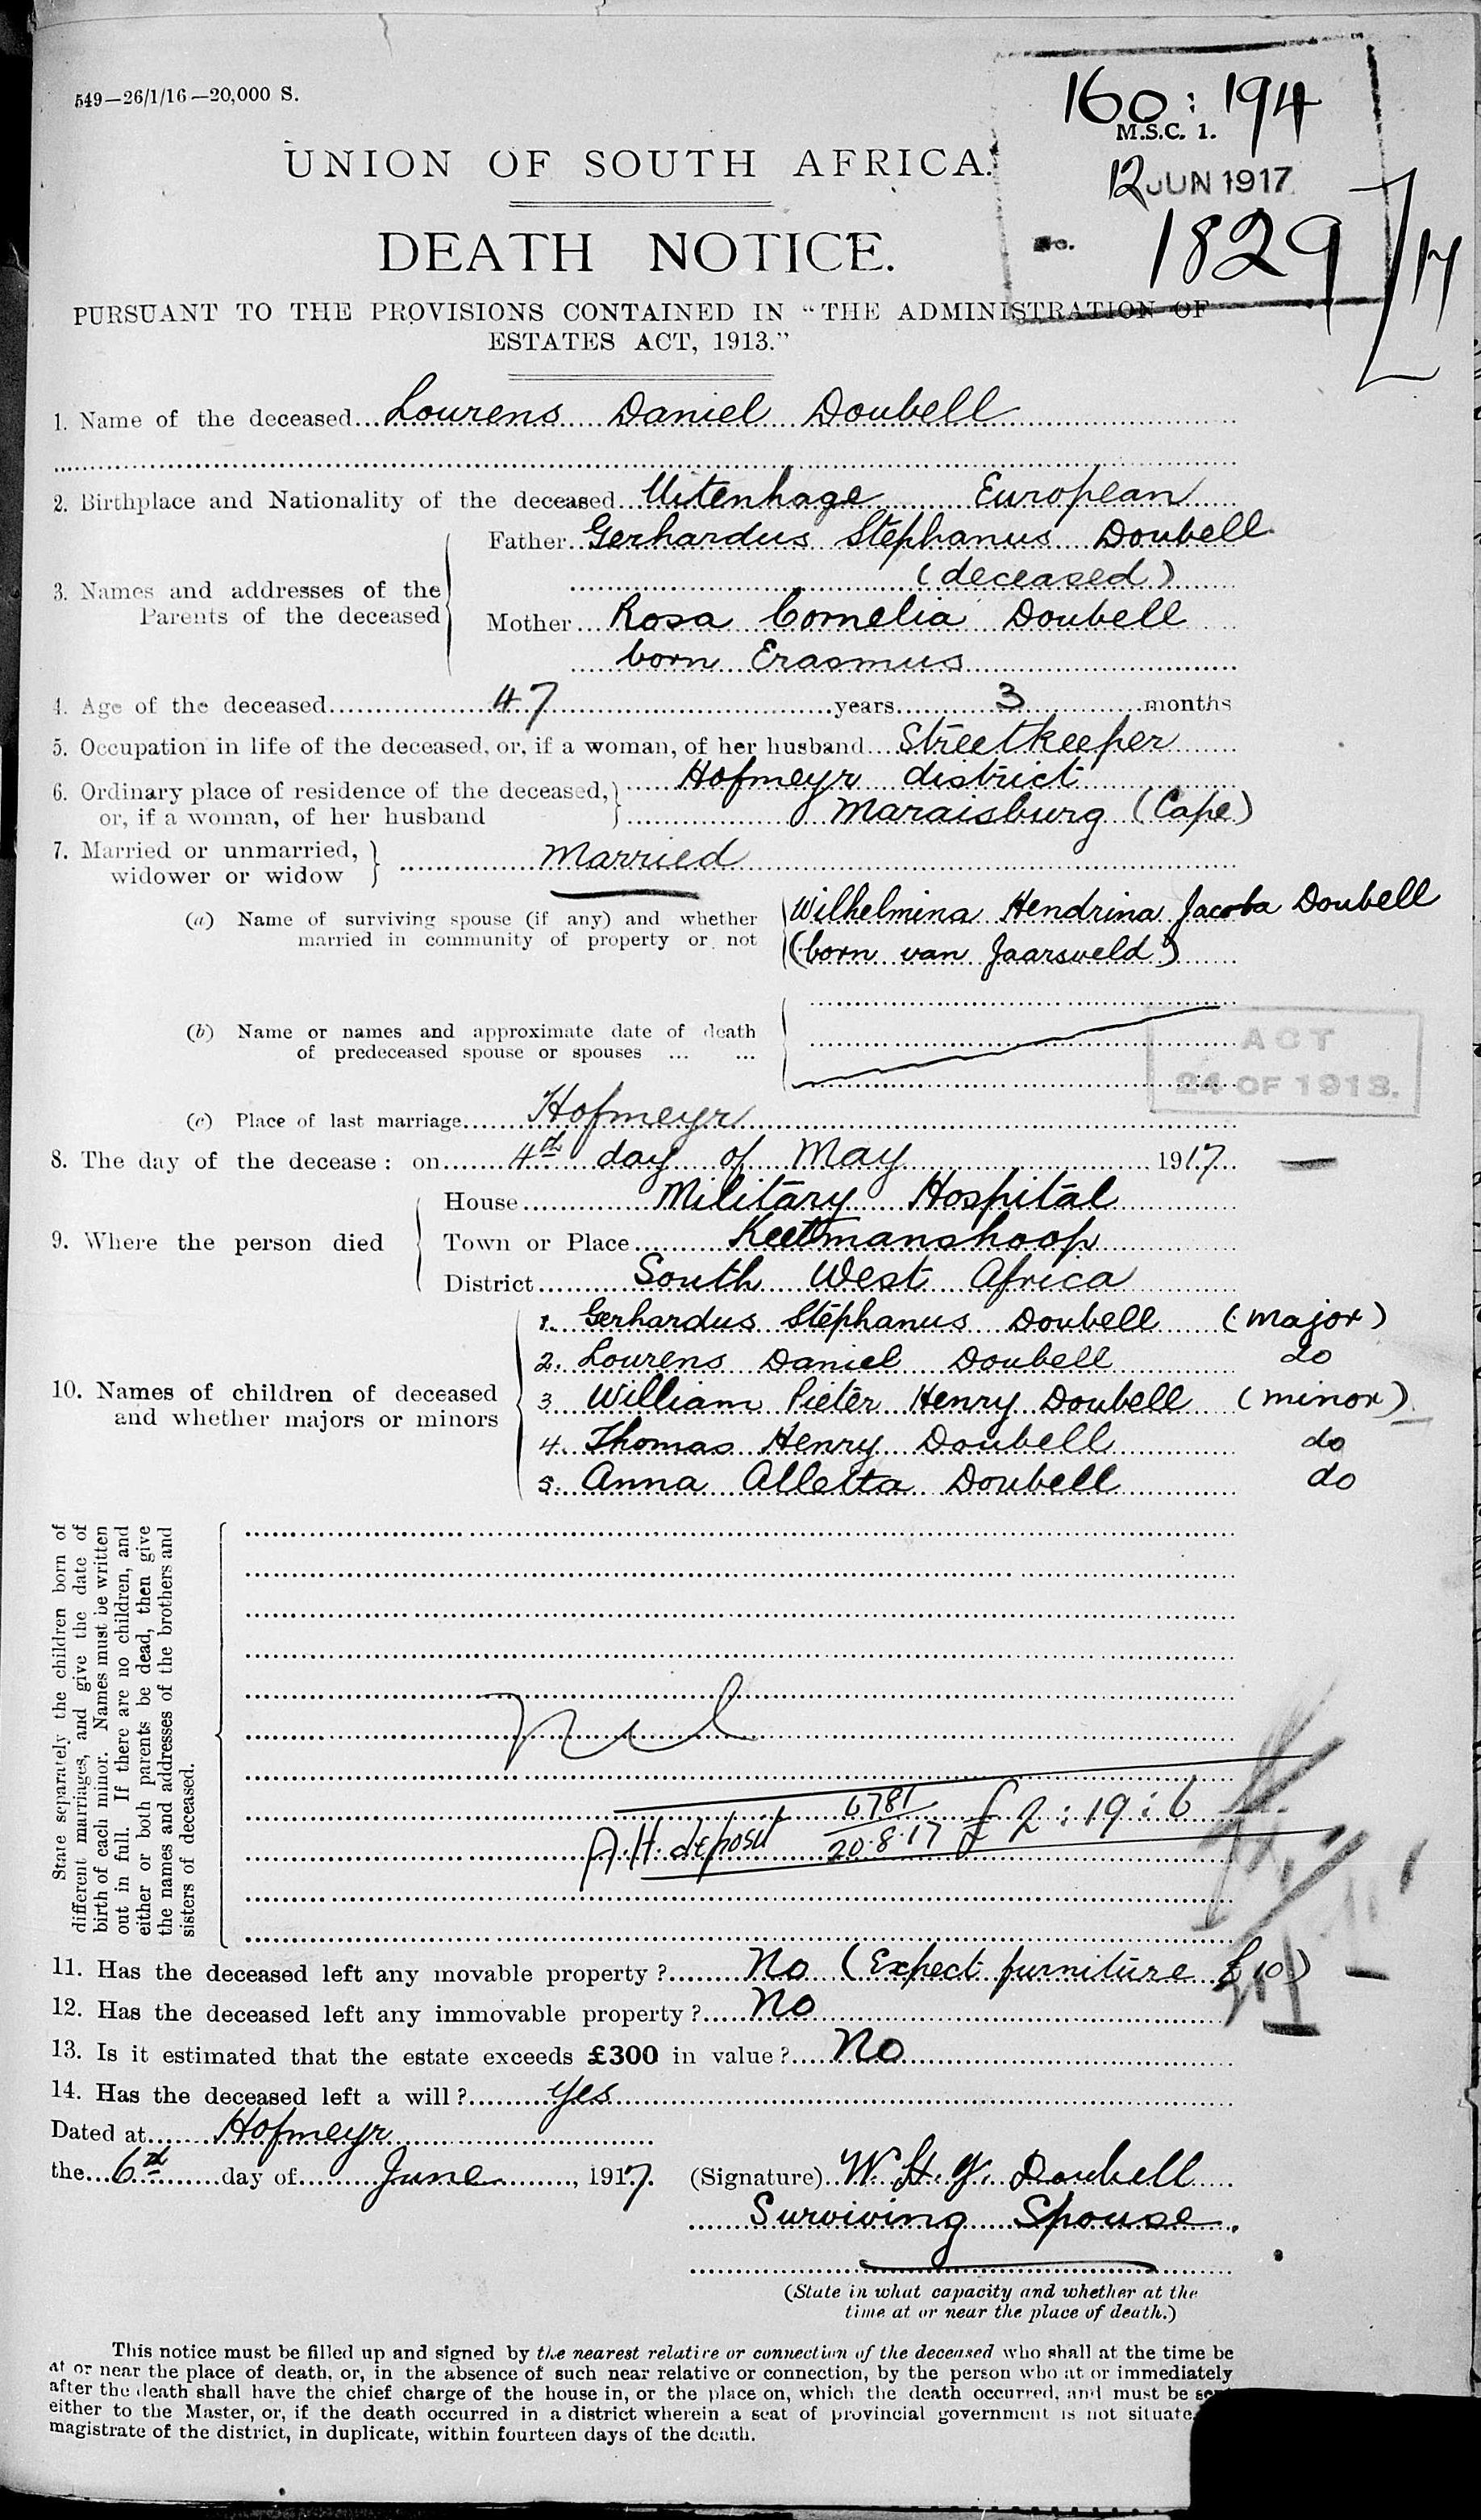 549—26/1/16—20,000 S.
160 : 194
M.S.C. 1.
UNION OF SOUTH AFRICA.
12 JUN 1917
No. 1829/17
DEATH NOTICE.
PURSUANT TO THE PROVISIONS CONTAINED IN "THE ADMINISTRATION OF
ESTATES ACT, 1913."
1. Name of the deceased Lourens Daniel Doubell
2. Birthplace and Nationality of the deceased Uitenhage European
3. Names and addresses of the Parents of the deceased
Father Gerhardus Stephanus Doubell
(deceased)
Mother Rosa Cornelia Doubell
born Erasmus
4. Age of the deceased 47 years 3 months
5. Occupation in life of the deceased, or, if a woman, of her husband Streetkeeper
6. Ordinary place of residence of the deceased, Hofmeyr district
or, if a woman, of her husband Maraisburg (Cape)
7. Married or unmarried, Married
widower or widow
(a) Name of surviving spouse (if any) and whether Wilhelmina Hendrina Jacoba Doubell
married in community of property or not (born van Jaarsveld)
(b) Name or names and approximate date of death
of predeceased spouse or spouses ... ...
ACT
24 OF 1913.
(c) Place of last marriage Hofmeyr
8. The day of the decease: on 4th day of May 1917
House Military Hospital
9. Where the person died Town or Place Keetmanshoop
District South West Africa
10. Names of children of deceased
and whether majors or minors
1. Gerhardus Stephanus Doubell (major)
2. Lourens Daniel Doubell do
3 William Pieter Henry Doubell (minor)
4. Thomas Henry Doubell do
5. Anna Alletta Doubell do
State separately the children born of
different marriages, and give the date of
birth of each minor. Names must be written
out in full. If there are no children, and
either or both parents be dead, then give
the names and addresses of the brothers and
sisters of deceased.
nil
A.H. deposit 6781
20.8.17 £2:19:6
11. Has the deceased left any movable property? No (Expect furniture £10)
12. Has the deceased left any immovable property? No
13. Is it estimated that the estate exceeds £300 in value? No
14. Has the deceased left a will? yes
Dated at Hofmeyr
the 6th day of June, 1917. (Signature) W. H. J. Doubell
Surviving Spouse.
(State in what capacity and whether at the
time at or near the place of death.)
This notice must be filled up and signed by the nearest relative or connection of the deceased who shall at the time be
at or near the place of death, or, in the absence of such near relative or connection, by the person who at or immediately
after the death shall have the chief charge of the house in, or the place on, which the death occurred, and must be
either to the Master, or, if the death occurred in a district wherein a seat of provincial government is not situate
magistrate of the district, in duplicate, within fourteen days of the death.